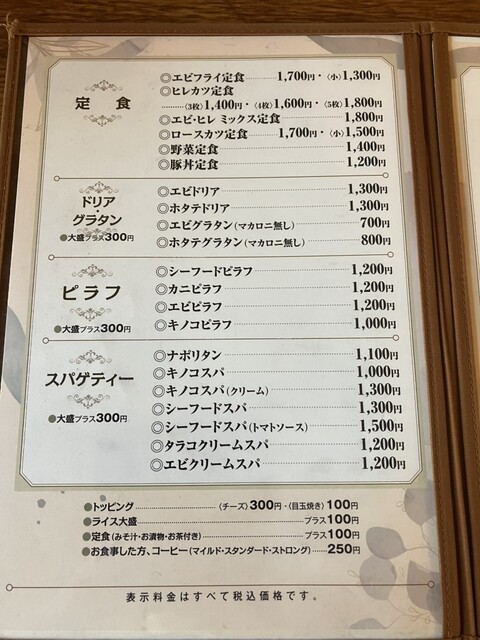 定食
◎エビフライ定食 1,700円・〈小〉1,300円
◎ヒレカツ定食
〈3枚〉1,400円・〈4枚〉1,600円・〈5枚〉1,800円
◎エビ・ヒレ ミックス定食 1,800円
◎ロースカツ定食 1,700円・〈小〉1,500円
◎野菜定食 1,400円
◎豚丼定食 1,200円
ドリア
グラタン
●大盛プラス300円
◎エビドリア 1,300円
◎ホタテドリア 1,300円
◎エビグラタン(マカロニ無し) 700円
◎ホタテグラタン(マカロニ無し) 800円
ピラフ
●大盛プラス300円
◎シーフードピラフ 1,200円
◎カニピラフ 1,200円
◎エビピラフ 1,200円
◎キノコピラフ 1,000円
スパゲティー
●大盛プラス300円
◎ナポリタン 1,100円
◎キノコスパ 1,000円
◎キノコスパ(クリーム) 1,300円
◎シーフードスパ 1,300円
◎シーフードスパ(トマトソース) 1,500円
◎タラコクリームスパ 1,200円
◎エビクリームスパ 1,200円
●トッピング 〈チーズ〉300円・〈目玉焼き〉100円
●ライス大盛 プラス100円
●定食(みそ汁・お漬物・お茶付き) プラス100円
●お食事した方、コーヒー(マイルド・スタンダード・ストロング) 250円
表示料金はすべて税込価格です。